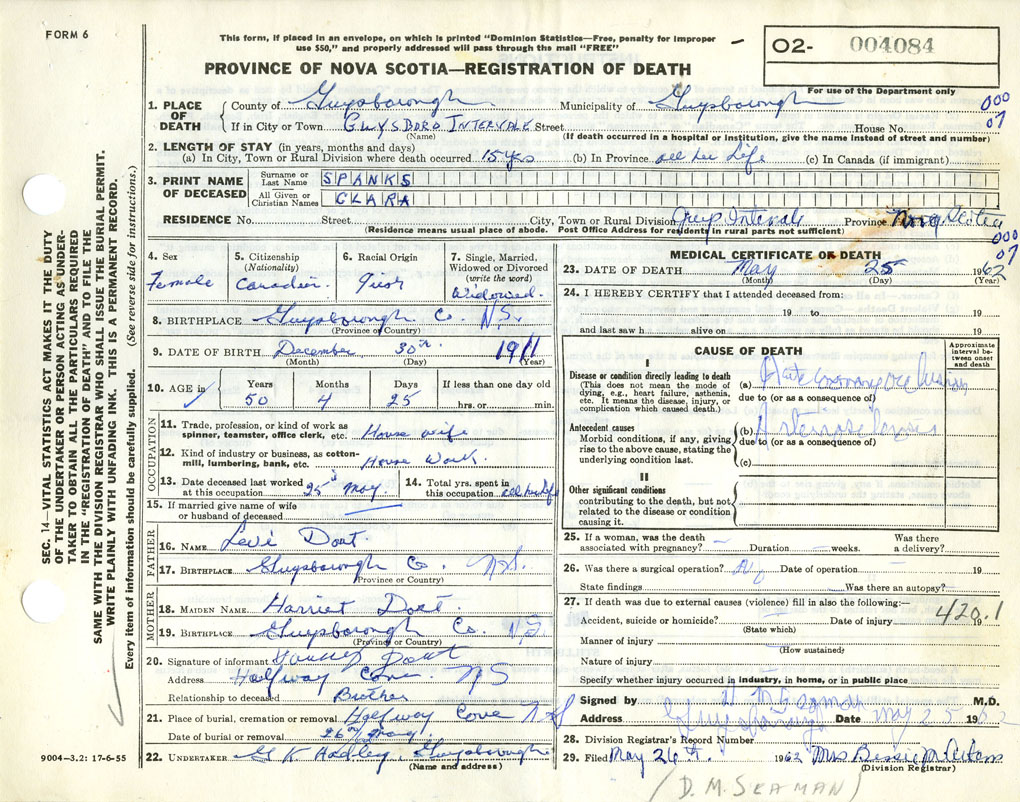 FORM 6
This form, if placed in an envelope, on which is printed "Dominion Statistics—Free, penalty for improper
use $50," and properly addressed will pass through the mail "FREE"
O2- 004084
For use of the Department only
PROVINCE OF NOVA SCOTIA—REGISTRATION OF DEATH
1. PLACE OF DEATH
County of Guysborough Municipality of Guysborough
000
07
If in City or Town GUYSBORO INTERVALE Street House No.
(Name) (If death occurred in a hospital or Institution, give the name instead of street and number)
2. LENGTH OF STAY (in years, months and days)
(a) In City, Town or Rural Division where death occurred 15 yrs (b) In Province all her Life (c) In Canada (if immigrant)
3. PRINT NAME OF DECEASED
Surname or Last Name SPANKS
All Given or Christian Names CLARA
RESIDENCE No. Street City, Town or Rural Division Guys Intervale Province Nova Scotia
(Residence means usual place of abode. Post Office Address for residents in rural parts not sufficient)
000
07
4. Sex
Female
5. Citizenship
(Nationality)
Canadian
6. Racial Origin
7. Single, Married,
Widowed or Divorced
(write the word)
Widowed.
8. BIRTHPLACE Guysborough Co. N.S.
(Province or Country)
9. DATE OF BIRTH December 30th 1911
(Month) (Day) (Year)
10. AGE in
Years Months Days If less than one day old
50 4 25 hrs. or min.
OCCUPATION
11. Trade, profession, or kind of work as
spinner, teamster, office clerk, etc. House wife
12. Kind of industry or business, as cotton-
mill, lumbering, bank, etc. House Work.
13. Date deceased last worked
at this occupation 25th May.
14. Total yrs. spent in
this occupation all her life
15. If married give name of wife
or husband of deceased
FATHER
16. NAME Levi Dort.
17. BIRTHPLACE Guysborough Co. N.S.
(Province or Country)
MOTHER
18. MAIDEN NAME Harriet Dort.
19. BIRTHPLACE Guysborough Co. N.S.
(Province or Country)
20. Signature of informant Dort
Address Halfway Cove. N S
Relationship to deceased Brother
21. Place of burial, cremation or removal Halfway Cove N S
Date of burial or removal 26th May.
22. UNDERTAKER G K Hadley, Guysborough
(Name and address)
MEDICAL CERTIFICATE OF DEATH
23. DATE OF DEATH May 25 1962
(Month) (Day) (Year)
24. I HEREBY CERTIFY that I attended deceased from:
19 to 19
and last saw h alive on 19
CAUSE OF DEATH
Approximate interval between onset and death
I
Disease or condition directly leading to death
(This does not mean the mode of
dying, e.g., heart failure, asthenia,
etc. It means the disease, injury, or
complication which caused death.)
(a) Acute Coronary Occlusion
due to (or as a consequence of)
Antecedent causes
Morbid conditions, if any, giving
rise to the above cause, stating the
underlying condition last.
(b) Arteriosclerosis
due to (or as a consequence of)
(c)
II
Other significant conditions
contributing to the death, but not
related to the disease or condition
causing it.
25. If a woman, was the death
associated with pregnancy? — Duration — weeks. Was there
a delivery? —
26. Was there a surgical operation? No Date of operation — 19
State findings Was there an autopsy?
27. If death was due to external causes (violence) fill in also the following:—
420.1
Accident, suicide or homicide? Date of injury 19
(State which)
Manner of injury
(How sustained)
Nature of injury
Specify whether injury occurred in industry, in home, or in public place
Signed by D M Seaman M.D.
Address Guysborough Date May 25 1962
28. Division Registrar's Record Number
29. Filed May 26th. 1962 Mrs Bessie
(Division Registrar)
(D. M. SEAMAN)
SEC. 14—VITAL STATISTICS ACT MAKES IT THE DUTY
OF THE UNDERTAKER OR PERSON ACTING AS UNDER-
TAKER TO OBTAIN ALL THE PARTICULARS REQUIRED
IN THE "REGISTRATION OF DEATH" AND TO FILE THE
SAME WITH THE DIVISION REGISTRAR WHO SHALL ISSUE THE BURIAL PERMIT.
WRITE PLAINLY WITH UNFADING INK. THIS IS A PERMANENT RECORD.
Every item of information should be carefully supplied. (See reverse side for instructions.)
9004-3.2: 17-6-55